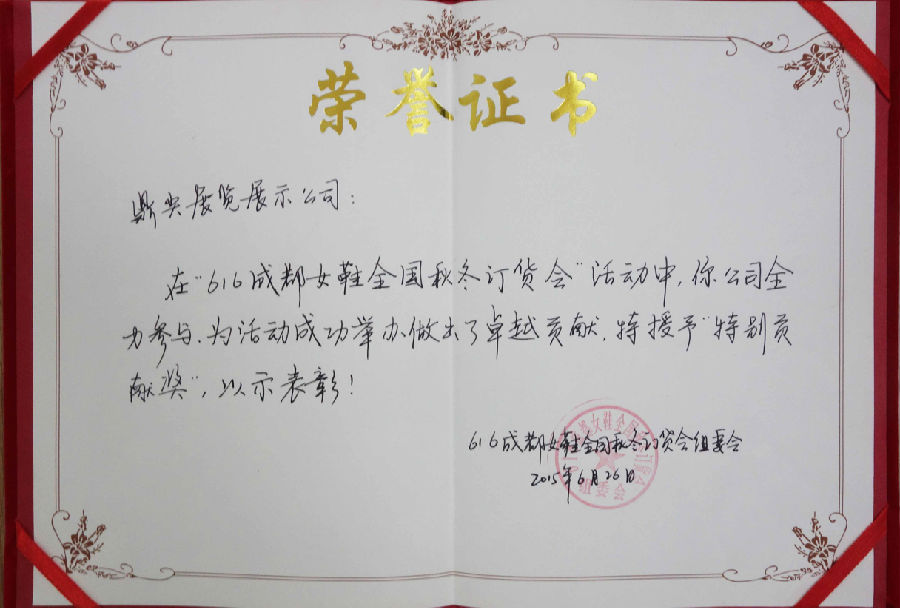 荣誉证书
鼎尖展览展示公司：
在"616成都女鞋全国秋冬订货会"活动中，你公司全
力参与、为活动成功举办做出了卓越贡献，特授予"特别贡
献奖"，以示表彰！
616成都女鞋全国秋冬订货会组委会
2015年6月26日